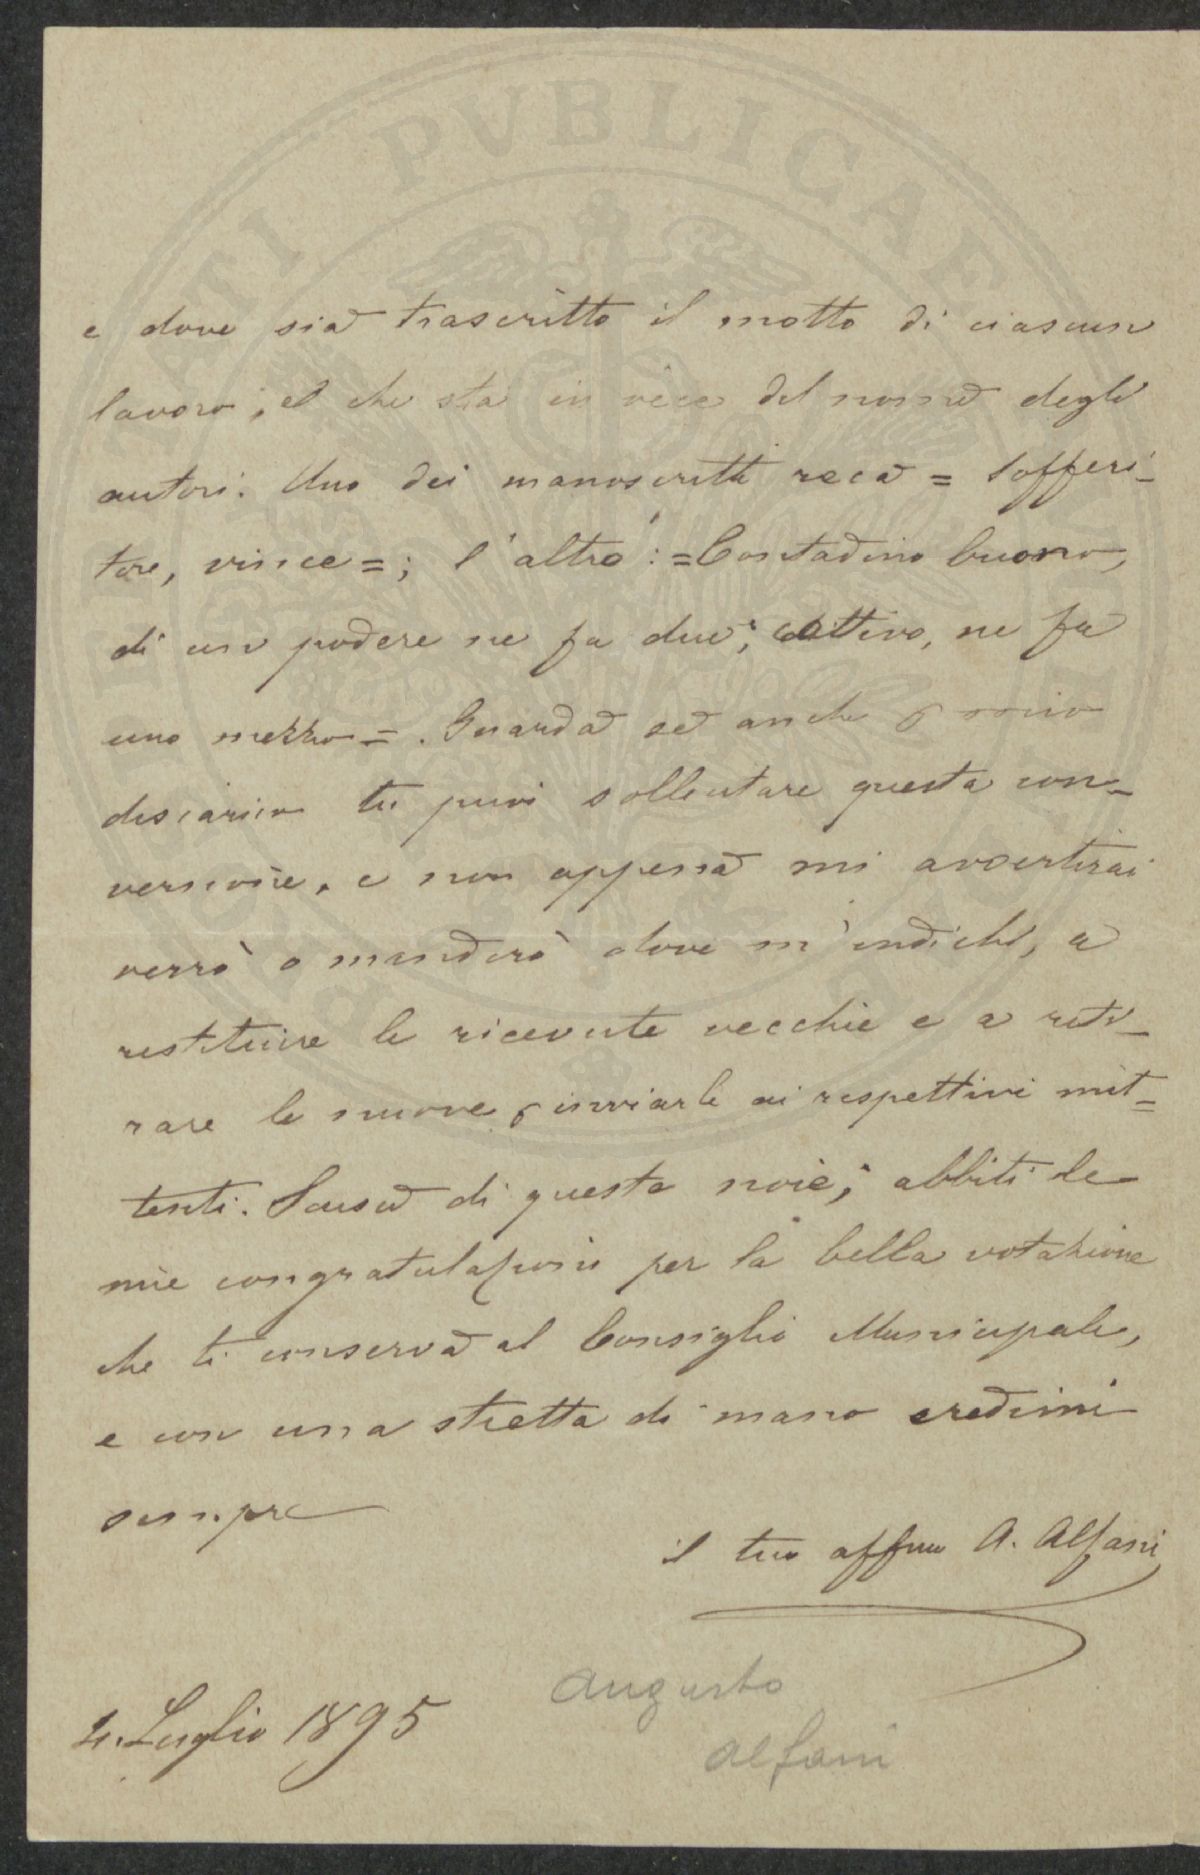 e dove sia trascritto il motto di ciascun
lavoro, il che sta in vece del nome degli
autori. Uno dei manoscritti reca = Sofferi-
tore, vince =; l'altro: = Contadino buono,
di un podere ne fa due; cattivo, ne fa
uno mezzo =. Guarda se anche p mio
discarico tu puoi sollecitare questa con-
versione, e non appena mi avvertirai
verrò o manderò dove m'indichi, a
restituire le ricevute vecchie e a riti-
rare le nuove p inviarle ai respettivi mit=
tenti. Scusa di queste noie; abbiti le
mie congratulazioni per la bella votazione
che ti conserva al Consiglio Municipale,
e con una stretta di mano credimi
sempre
il tuo affmo A. Alfani
4. Luglio 1895
Augusto
Alfani
PUBLICAE